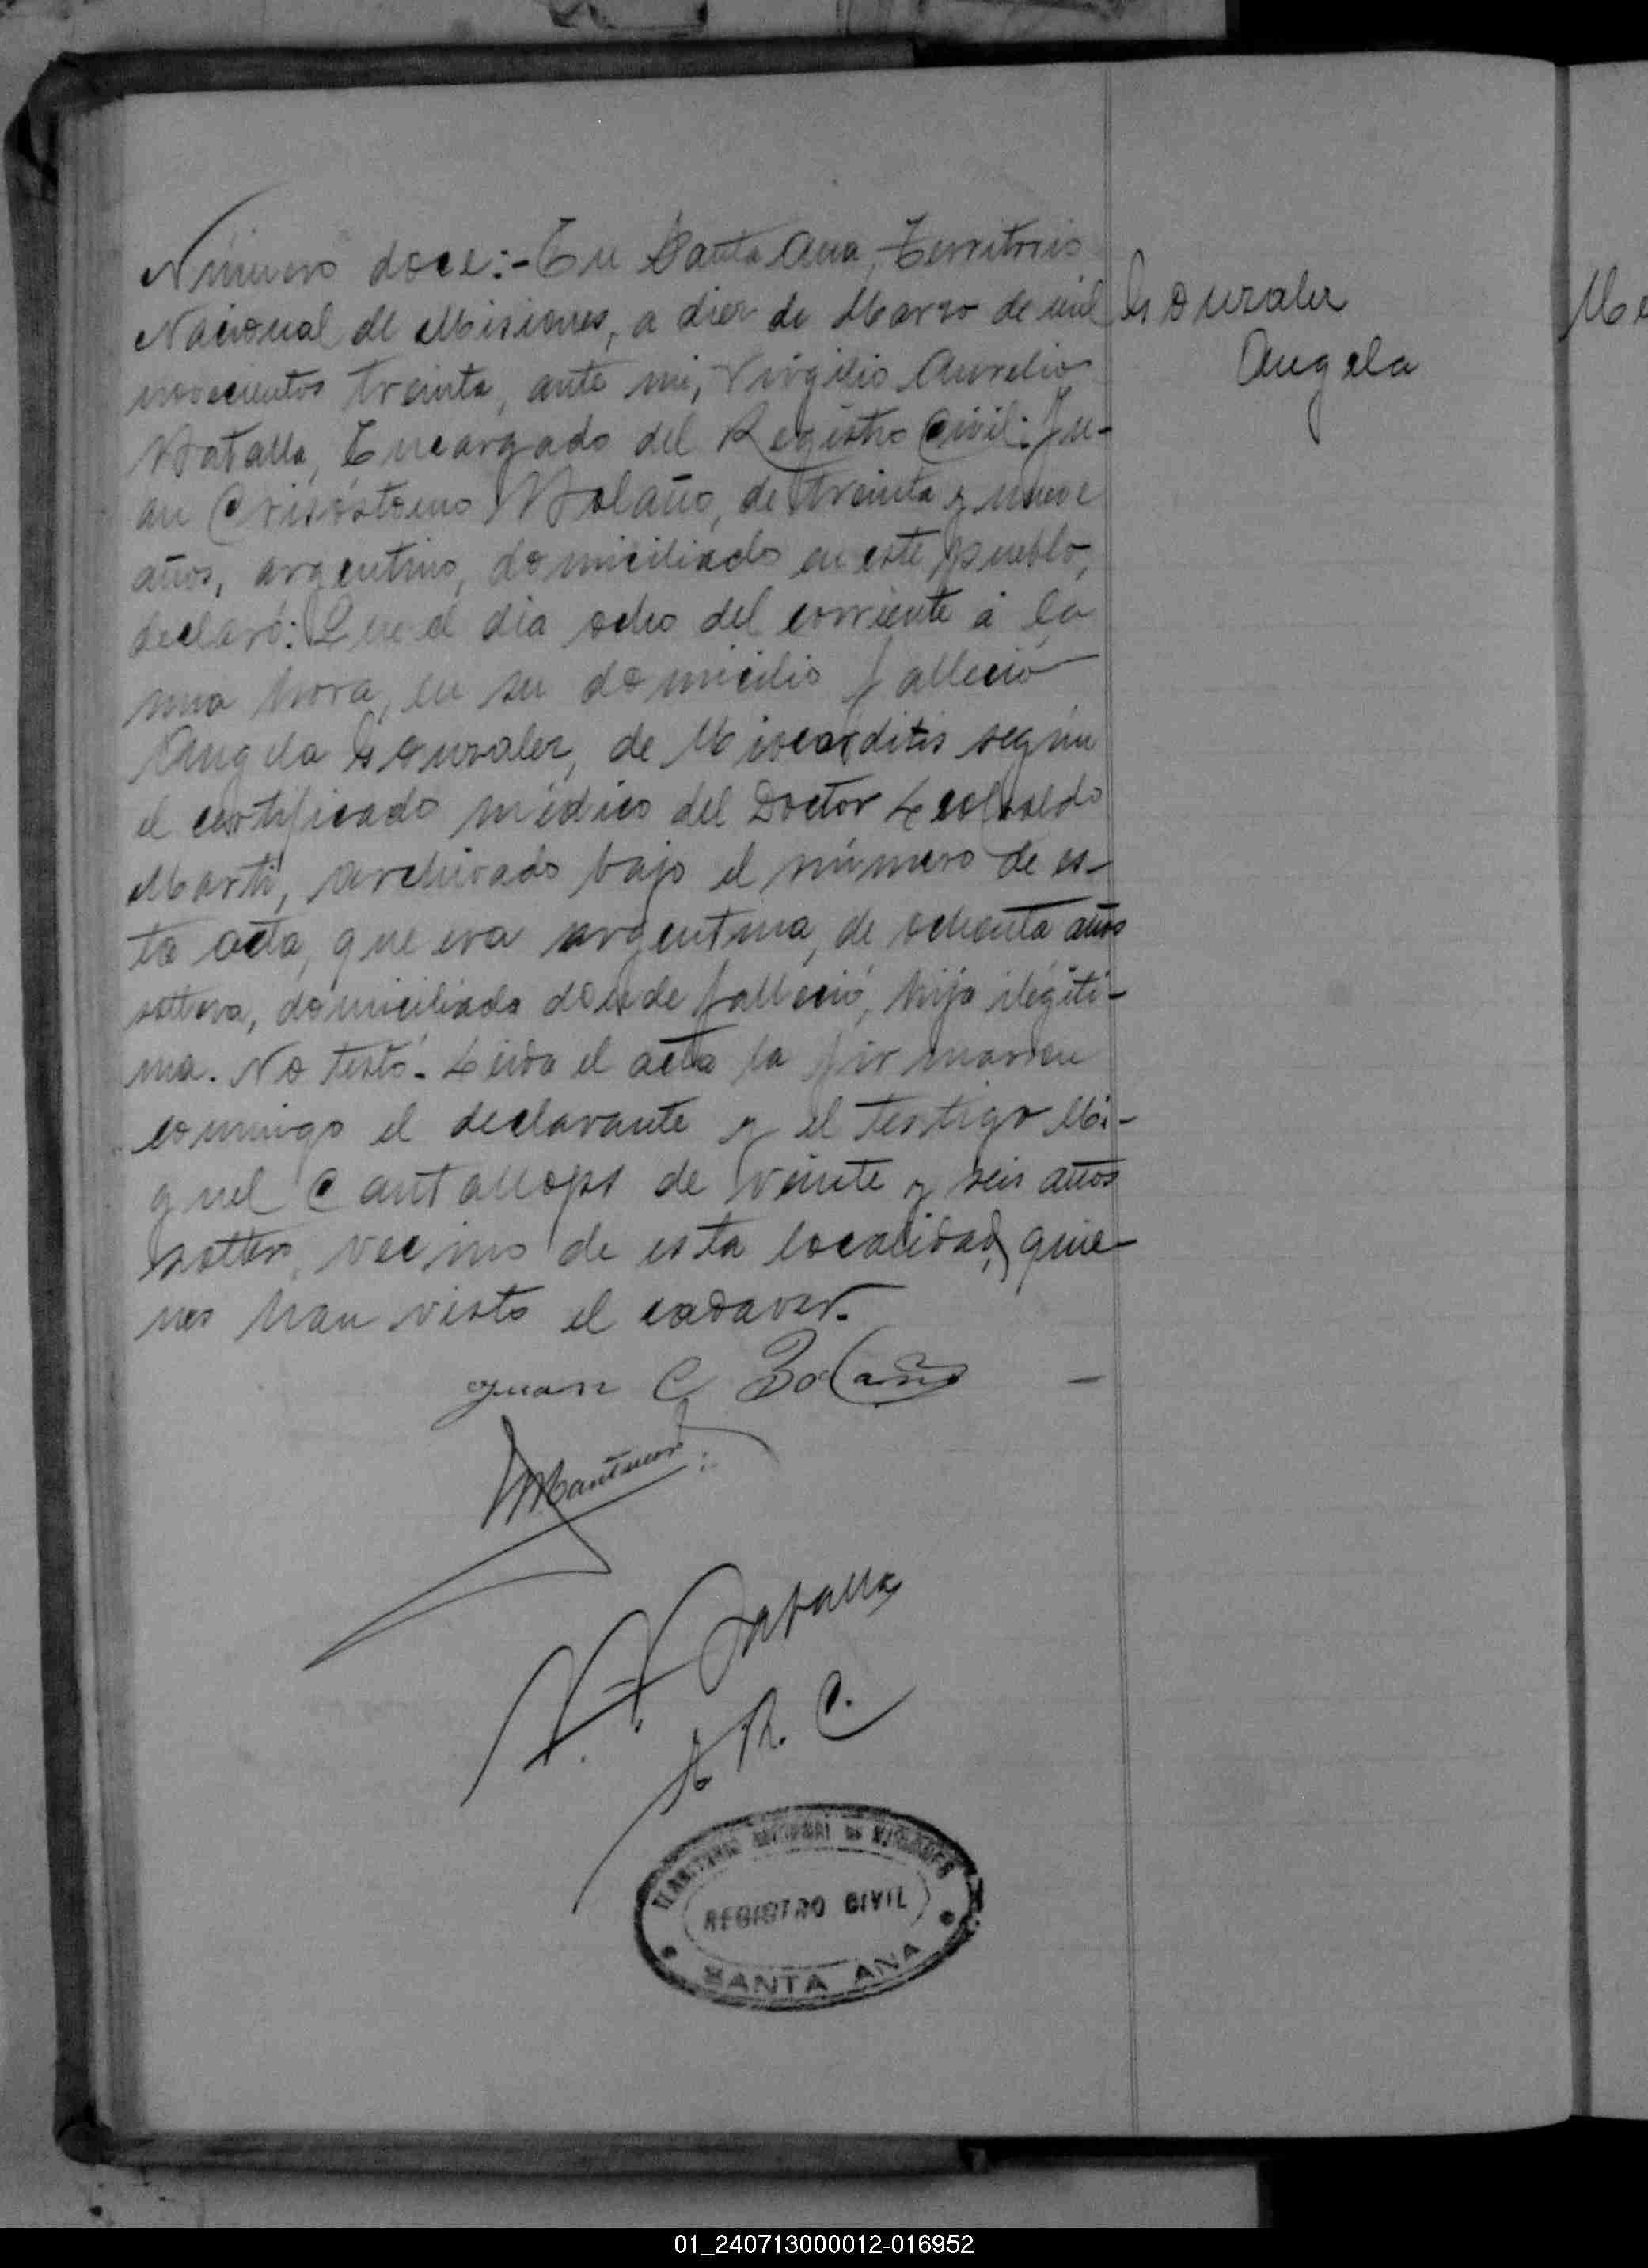 Número doce:- En Santa Ana, Territorio
Nacional de Misiones, a diez de Marzo de mil
novecientos treinta, ante mi, Virgilio Aurelio
Batalla, Encargado del Registro Civil: Ju-
an Crisóstomo Bolaño, de treinta y nueve
años, argentino, domiciliado en este pueblo,
declaró: Que el dia ocho del corriente á la
una hora, en su domicilio falleció
Angela Gonzalez, de Miocarditis según
el certificado médico del Doctor Leopoldo
Marti, archivado bajo el número de es-
ta acta, que era argentina, de ochenta años
soltera, domiciliada donde falleció, hija ilegiti-
ma. No testó. Leida el acta la firmaron
conmigo el declarante y el testigo Mi-
guel Cantallops de veinte y seis años
soltero, vecino de esta localidad, quie-
nes han visto el cadaver.
Gonzalez
Angela
Juan C Bolaño
V. A. Batalla
R. C.
TERRITORIO NACIONAL DE MISIONES
REGISTRO CIVIL
SANTA ANA
01_240713000012-016952